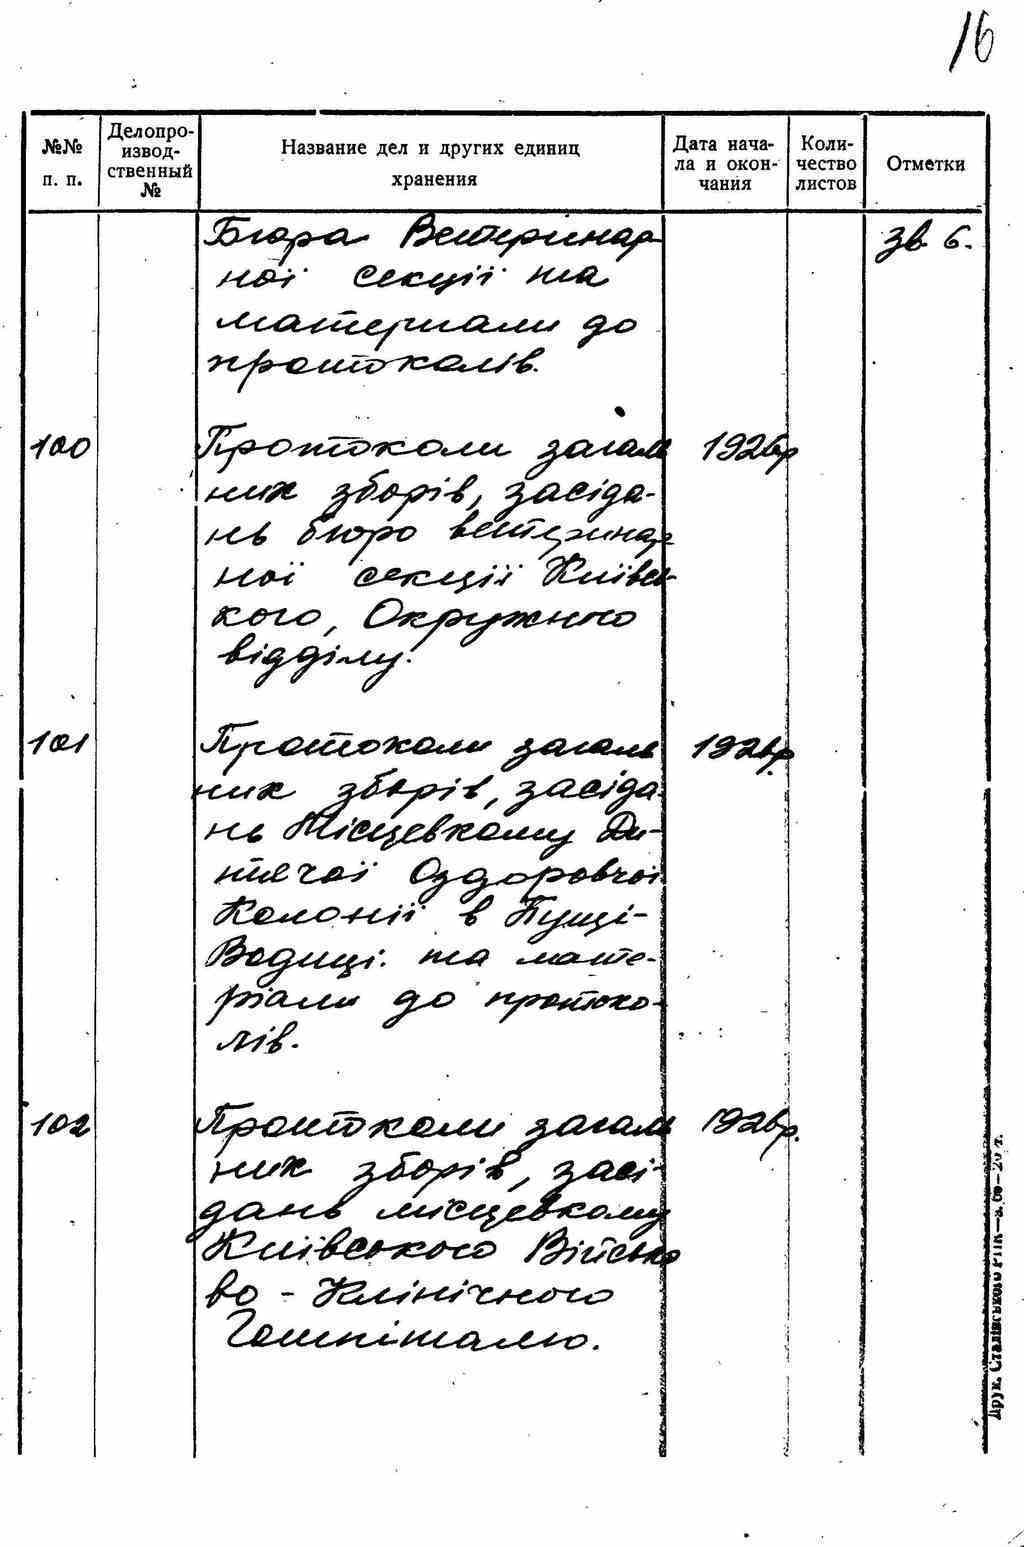 16
№№ п. п.
Делопро-
извод-
ственный
№
Название дел и других единиц
хранения
Дата нача-
ла и окон-
чания
Коли-
чество
листов
Отметки
Бюра Ветеринар
ної секції та
материали до
протоколів.
зв 6.
100
Протоколи загаль
1926р
них зборів, засіда-
нь бюро ветеринар
ної секції Київсь-
кого, Окружного
відділу.
101
Протоколи загаль
1926р.
них зборів, засіда-
нь Місцевкому Ди-
тячої Оздоровчої
Колонії в Пущі-
Водиці. та мате-
ріали до протоко-
лів.
102
Протоколи загаль
1926р.
них зборів, засі-
дань місцевкому
Київського Військо
во - Клінічного
Гошпіталю.
Друк. Сталінського